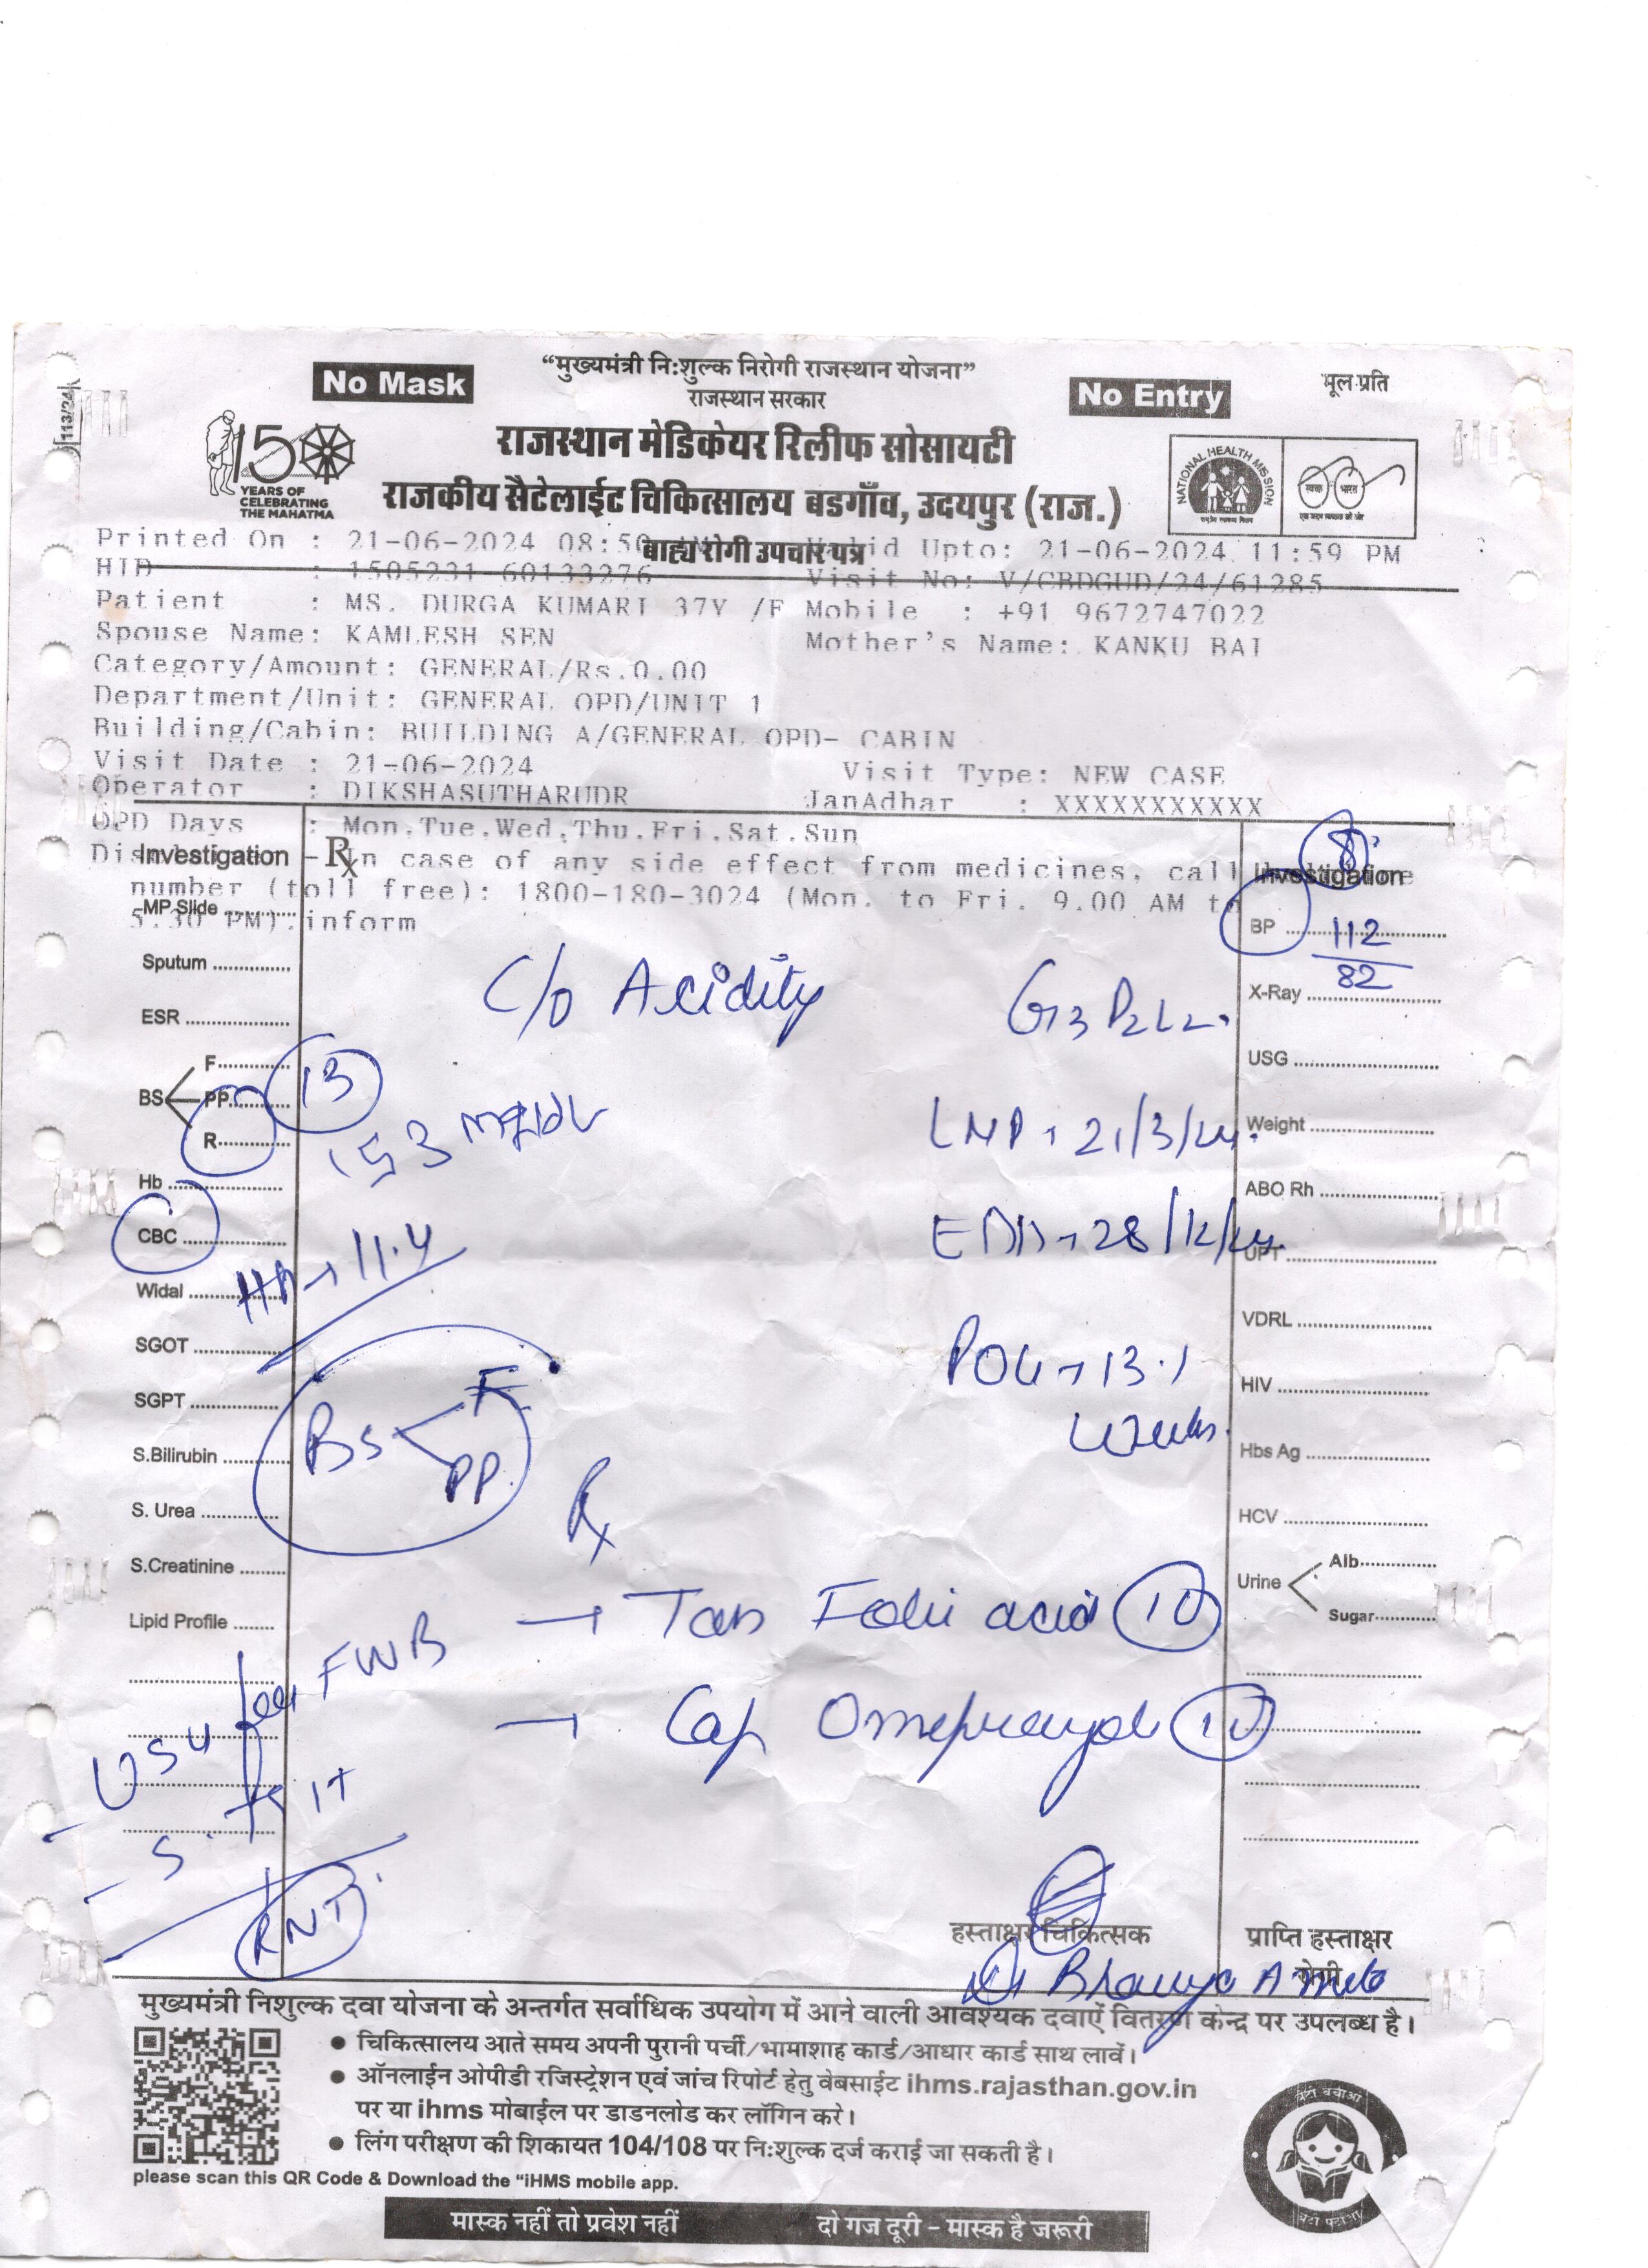 113/24
No Mask
“मुख्यमंत्री नि:शुल्क निरोगी राजस्थान योजना”
No Entry
मूल प्रति
राजस्थान सरकार
राजस्थान मेडिकेयर रिलीफ सोसायटी
राजकीय सैटेलाईट चिकित्सालय बडगाँव, उदयपुर (राज.)
150
YEARS OF
CELEBRATING
THE MAHATMA
NATIONAL HEALTH MISSION
स्वच्छ भारत
एक कदम स्वच्छता की ओर
बाह्य रोगी उपचार पत्र
Printed On : 21-06-2024 08:50 Upto: 21-06-2024 11:59 PM
HID : 1505231-60133276 Visit No: V/CBDGUD/24/61285
Patient : MS. DURGA KUMARI 37Y /F Mobile : +91 9672747022
Spouse Name: KAMLESH SEN Mother's Name: KANKU BAI
Category/Amount: GENERAL/Rs.0.00
Department/Unit: GENERAL OPD/UNIT 1
Building/Cabin: BUILDING A/GENERAL OPD- CABIN
Visit Date : 21-06-2024 Visit Type: NEW CASE
Operator : DIKSHASUTHARUDR JanAdhar : XXXXXXXXXXX
OPD Days : Mon,Tue,Wed,Thu,Fri,Sat,Sun
Investigation Rx In case of any side effect from medicines, call Investigation
number (toll free): 1800-180-3024 (Mon. to Fri. 9.00 AM to
5.30 PM). inform
8
MP Slide
BP 112/82
Sputum
C/o Acidity
G3P2L2.
X-Ray
ESR
USG
BS F PP R
13
153 mg/dL
LMP → 21/3/24.
Weight
Hb
ABO Rh
CBC
EDD → 28/12/24.
UPT
Hb → 11.4
Widal
VDRL
SGOT
POG → 13.1
weeks.
HIV
SGPT
BS F PP
Hbs Ag
S.Bilirubin
Rx
HCV
S. Urea
S.Creatinine
Urine Alb Sugar
→ Tab Folic acid 10
Lipid Profile
→ Cap Omeprazole 10
- USG for FWB
RNT
हस्ताक्षर चिकित्सक
प्राप्ति हस्ताक्षर
रोगी
Dr
मुख्यमंत्री निशुल्क दवा योजना के अन्तर्गत सर्वाधिक उपयोग में आने वाली आवश्यक दवाऐं वितरण केन्द्र पर उपलब्ध है।
● चिकित्सालय आते समय अपनी पुरानी पर्ची/भामाशाह कार्ड/आधार कार्ड साथ लावें।
● ऑनलाईन ओपीडी रजिस्ट्रेशन एवं जांच रिपोर्ट हेतु वेबसाईट ihms.rajasthan.gov.in
पर या ihms मोबाईल पर डाडनलोड कर लॉगिन करे।
● लिंग परीक्षण की शिकायत 104/108 पर नि:शुल्क दर्ज कराई जा सकती है।
please scan this QR Code & Download the “iHMS mobile app.
मास्क नहीं तो प्रवेश नहीं दो गज दूरी – मास्क है जरूरी
बेटी बचाओ
बेटी पढ़ाओ